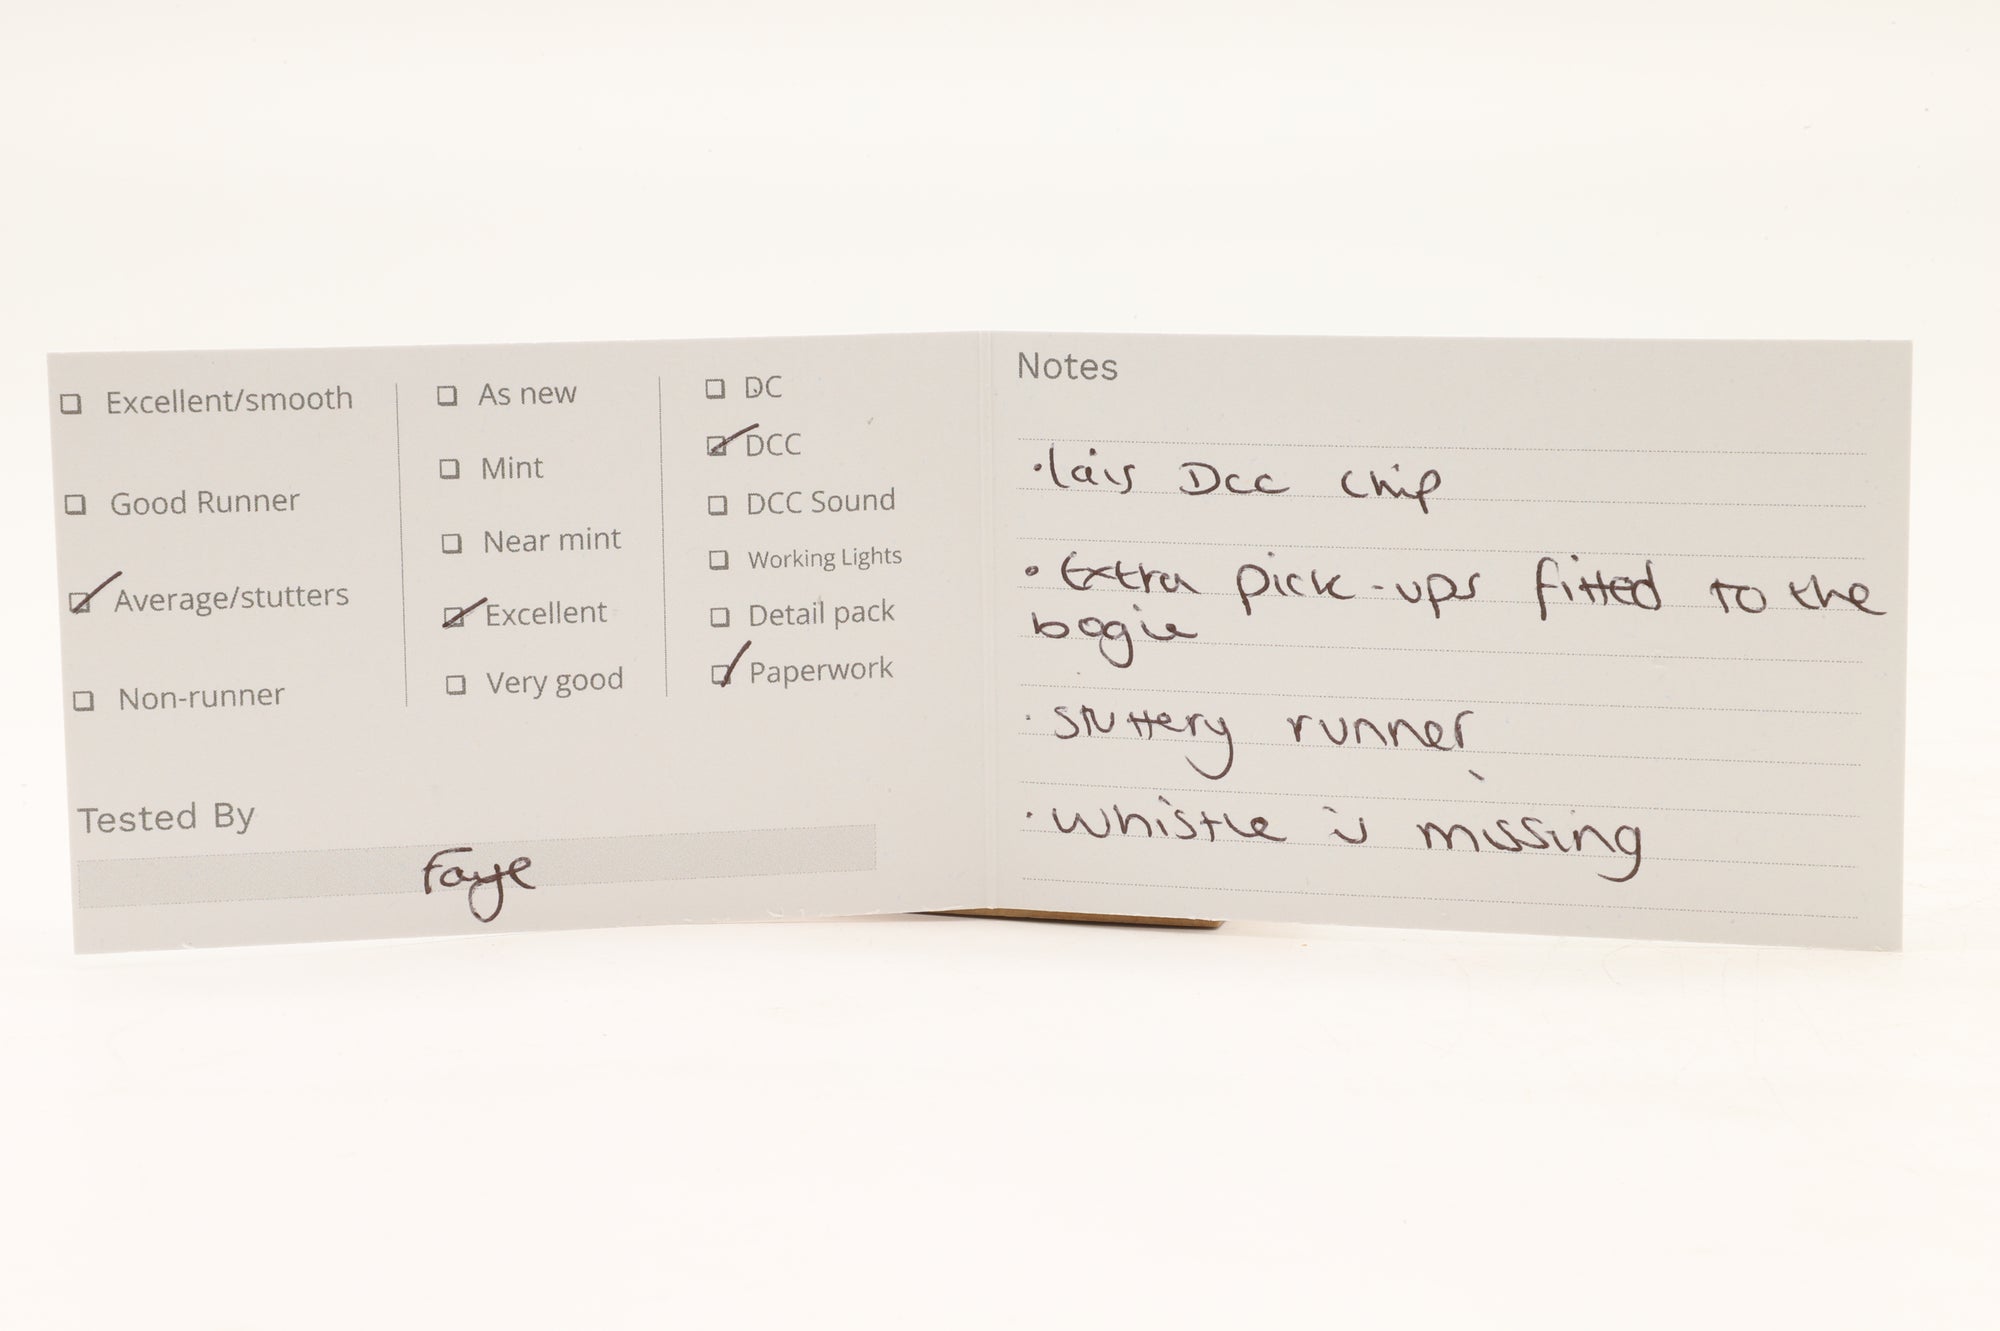 ☐ Excellent/smooth
☐ Good Runner
☑ Average/stutters
☐ Non-runner
☐ As new
☐ Mint
☐ Near mint
☑ Excellent
☐ Very good
☐ DC
☑ DCC
☐ DCC Sound
☐ Working Lights
☐ Detail pack
☑ Paperwork
Tested By
Faye
Notes
• Lais Dcc chip
• Extra pick-ups fitted to the
bogie
• stuttery runner
• whistle is missing